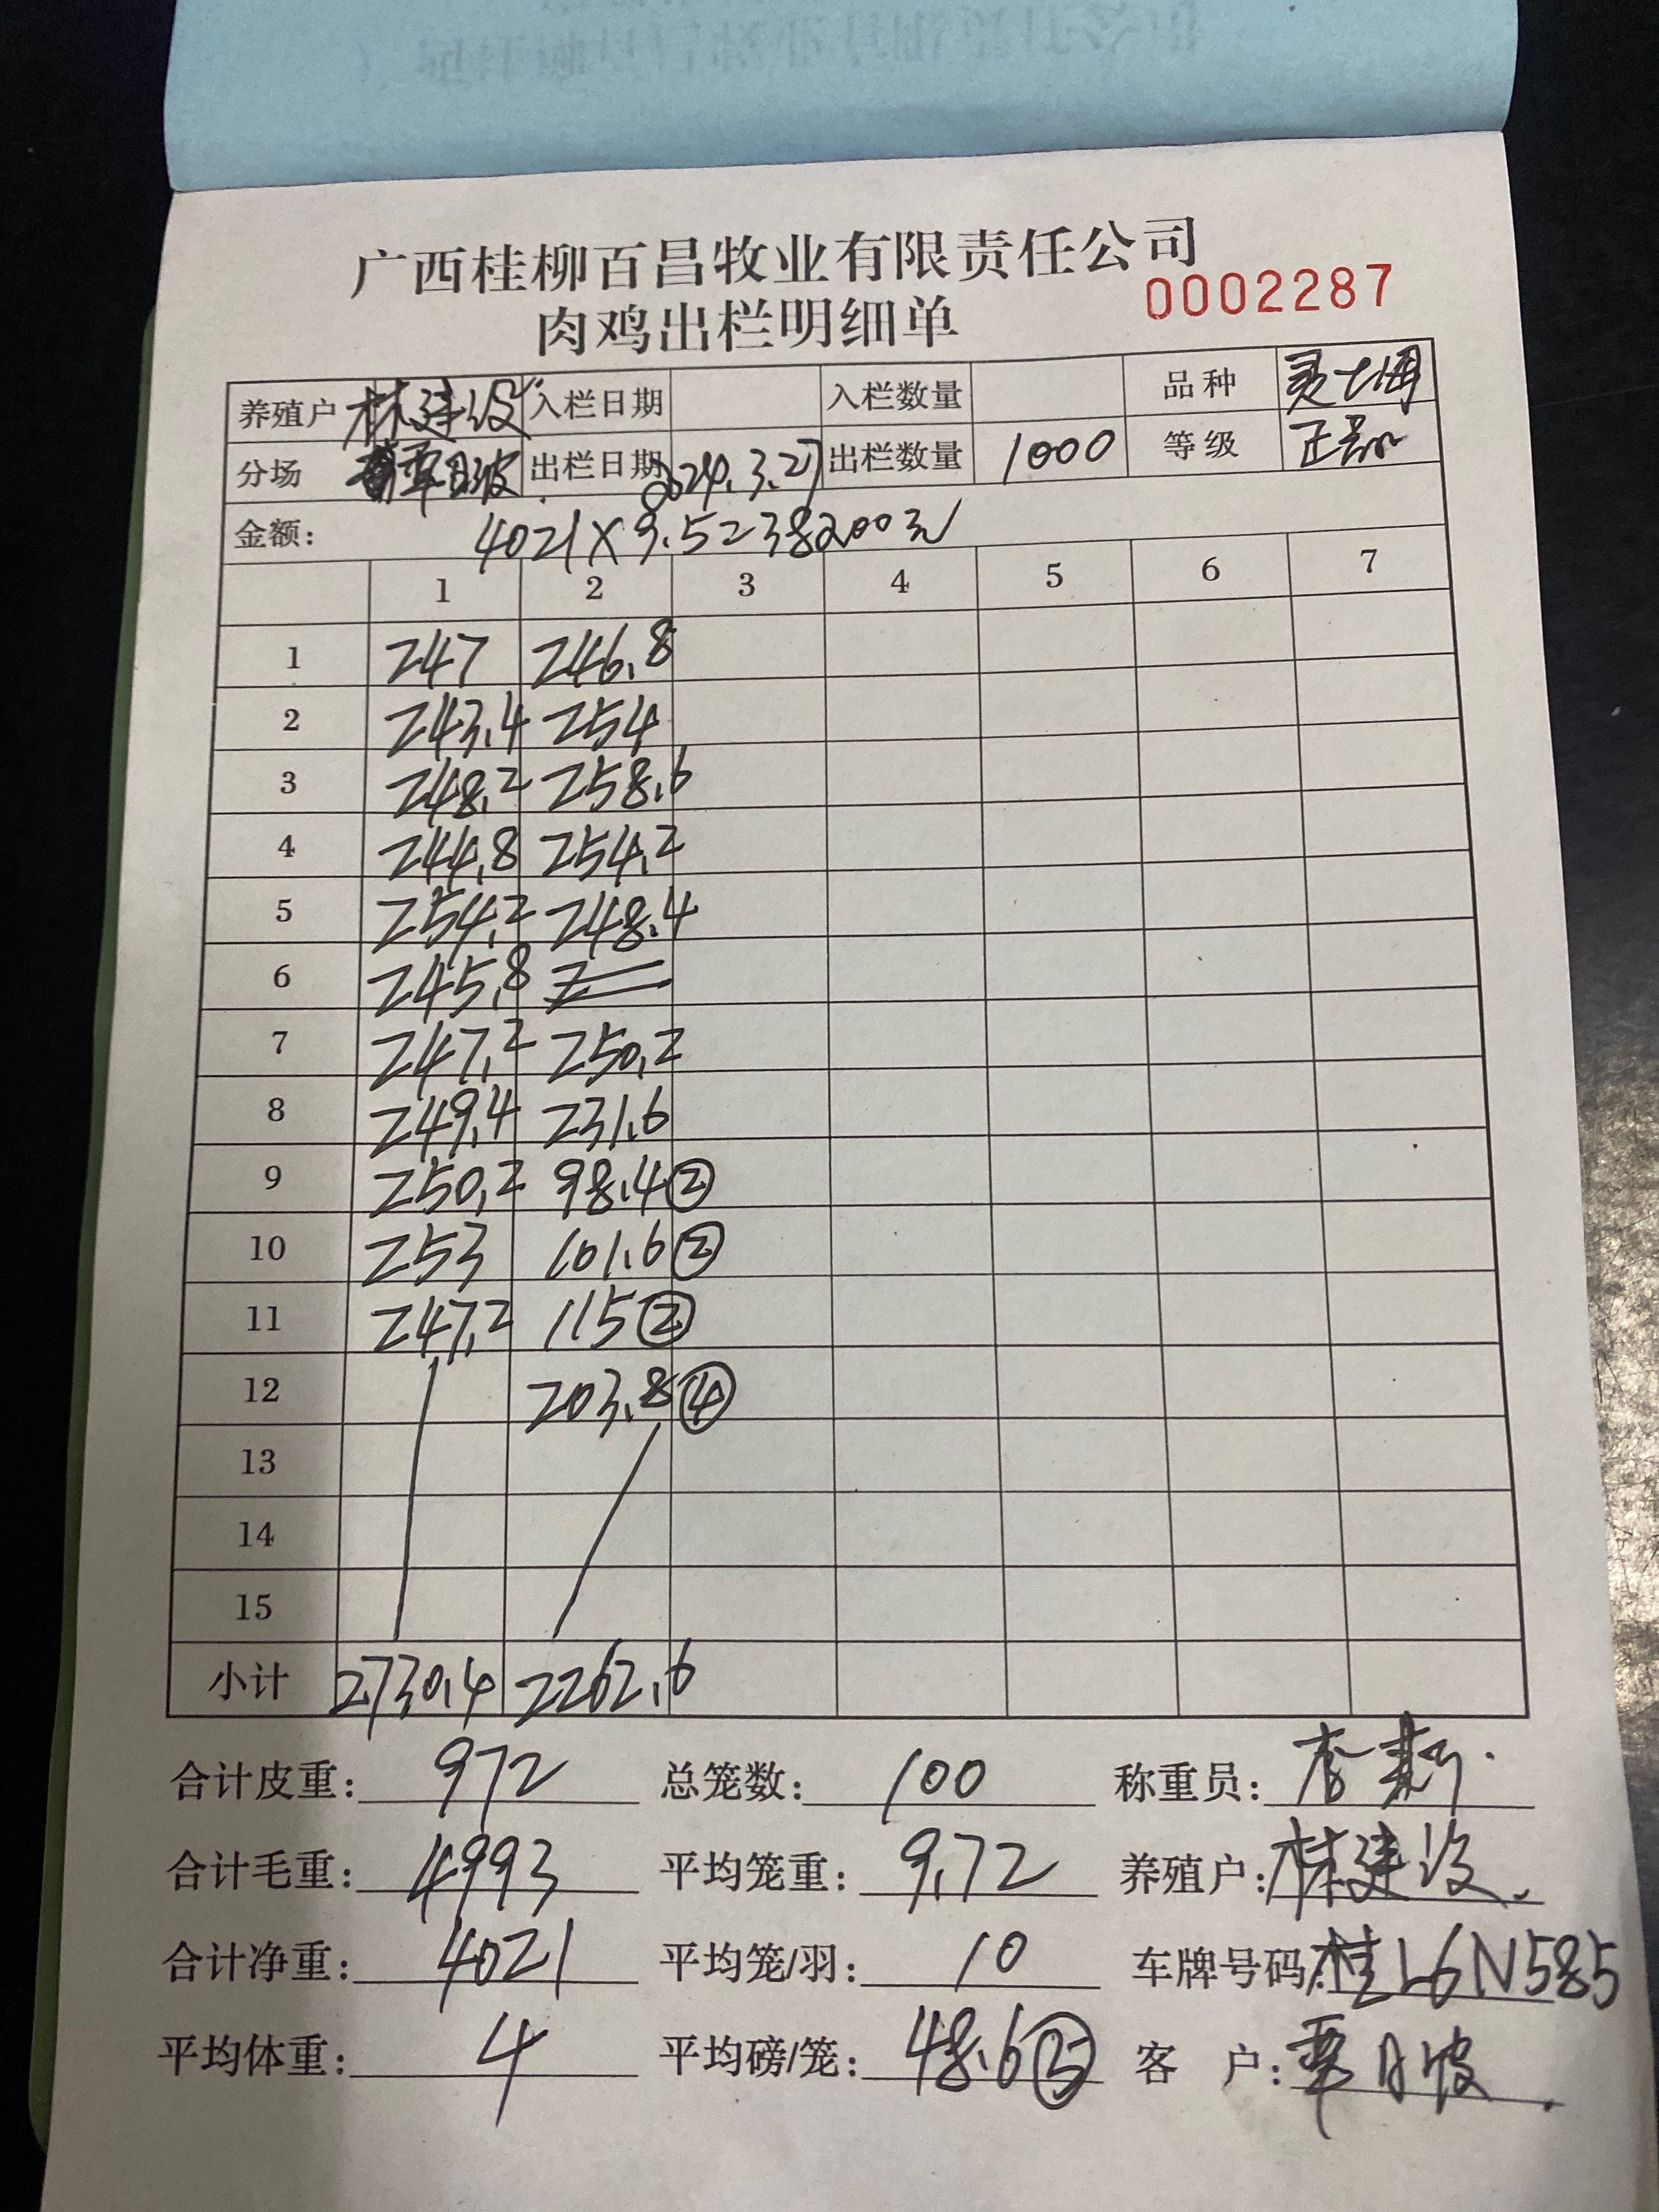 广西桂柳百昌牧业有限责任公司
肉鸡出栏明细单 0002287
养殖户 林建设 入栏日期 入栏数量 品种
分场 覃日波 出栏日期 2024.3.27 出栏数量 1000 等级 正品
金额: 4021×9.5=38200元
1 2 3 4 5 6 7
1 247 246.8
2 243.4 254
3 248.2 258.6
4 244.8 254.2
5 254.2 248.4
6 245.8
7 247.2 250.2
8 249.4 231.6
9 250.2 98.4②
10 253 101.6②
11 247.2 115②
12 203.8④
13
14
15
小计 2730.4 2262.6
合计皮重: 972 总笼数: 100 称重员: 李
合计毛重: 4993 平均笼重: 9.72 养殖户: 林建设
合计净重: 4021 平均笼/羽: 10 车牌号码: 桂L6N585
平均体重: 4 平均磅/笼: 48.6⑤ 客户: 覃日波